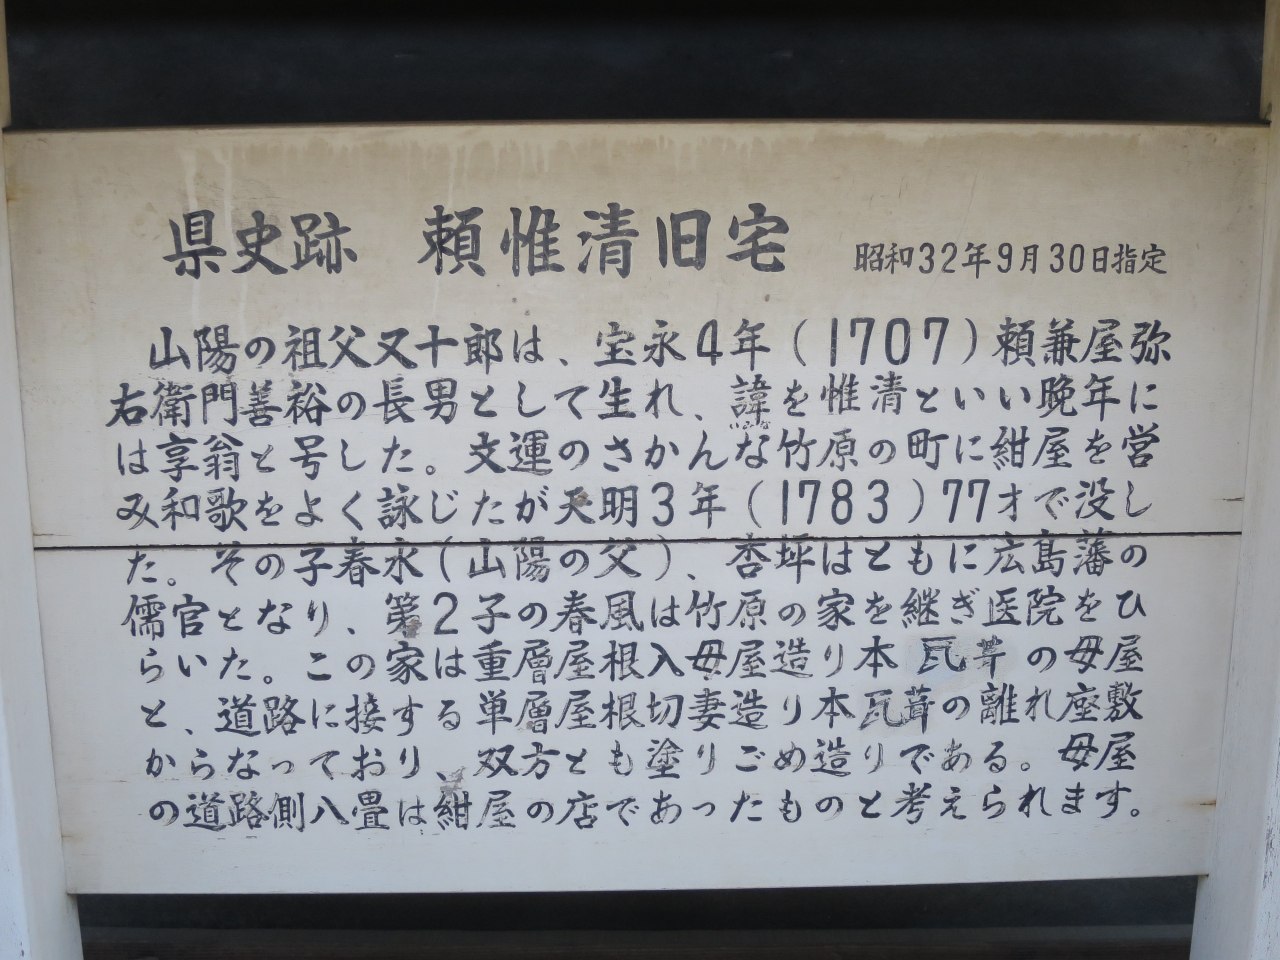 県史跡　頼惟清旧宅　昭和32年9月30日指定
山陽の祖父又十郎は、宝永4年(1707)頼兼屋弥
右衛門善裕の長男として生れ、諱を惟清といい晩年に
いみな
は享翁と号した。文運のさかんな竹原の町に紺屋を営
み和歌をよく詠じたが天明3年(1783)77才で没し
た。その子春永(山陽の父)、杏坪はともに広島藩の
儒官となり、第2子の春風は竹原の家を継ぎ医院をひ
らいた。この家は重層屋根入母屋造り本瓦葺の母屋
と、道路に接する単層屋根切妻造り本瓦葺の離れ座敷
からなっており、双方とも塗りごめ造りである。母屋
の道路側八畳は紺屋の店であったものと考えられます。